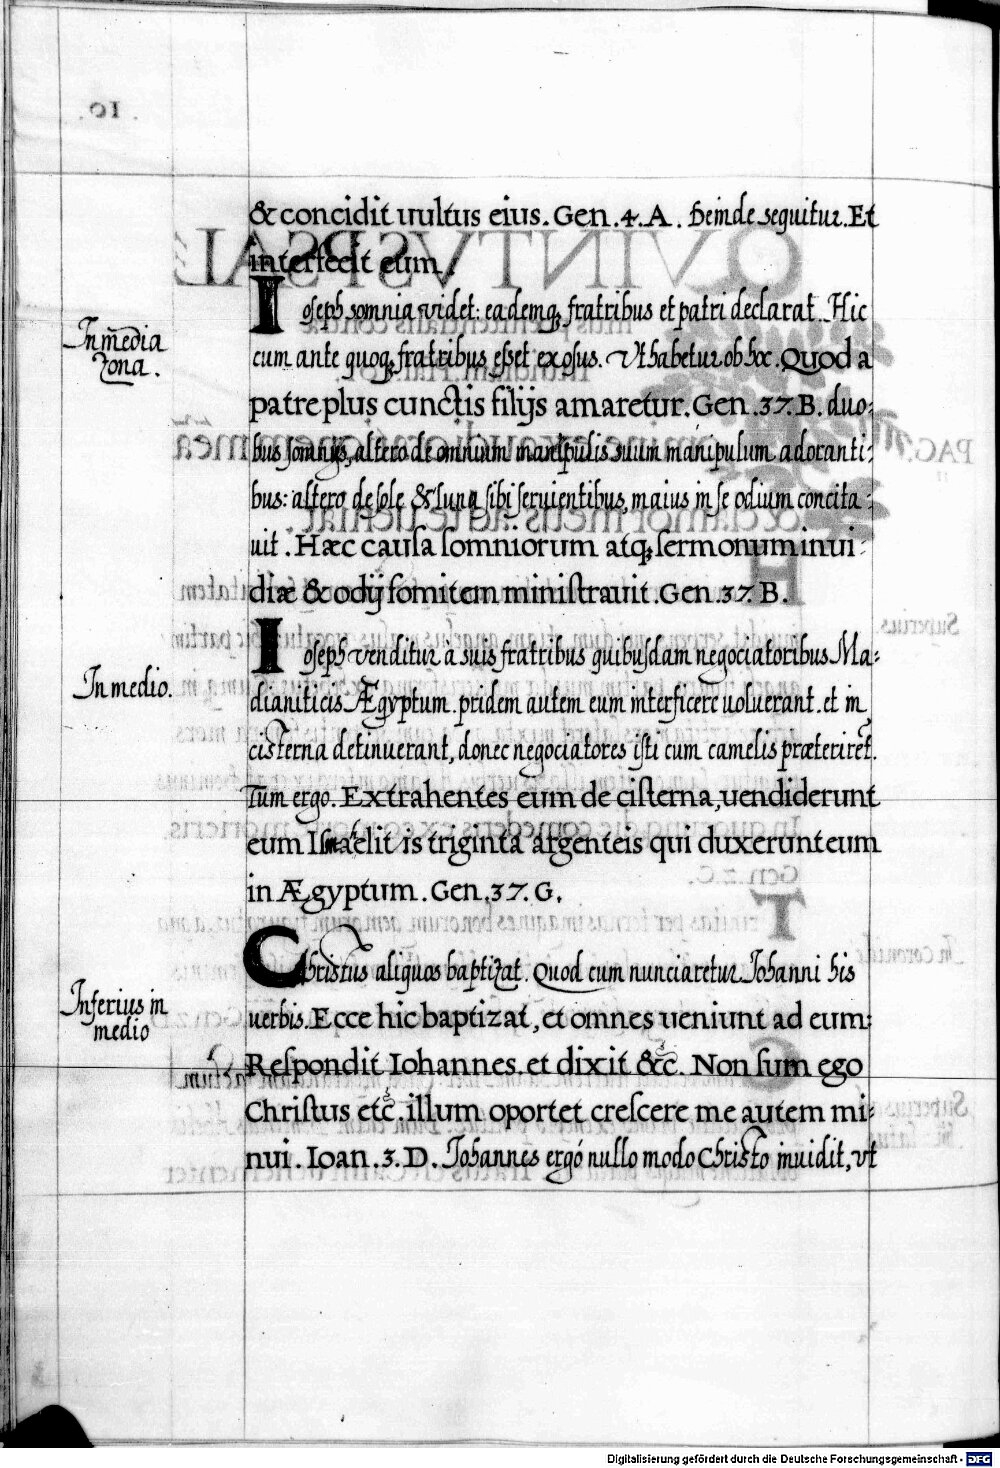 & concidit uultus eius. Gen. 4. A. Deinde sequitur. Et
interfecit eum.
In media
zona.
Ioseph somnia videt: eademq; fratribus et patri declarat. Hic
cum ante quoq; fratribus esset exosus. Vt habetur ob hoc. Quod a
patre plus cunctis filijs amaretur. Gen. 37. B. duo-
bus somnijs, altero de omnium manipulis suum manipulum adoranti-
bus: altero de sole & luna sibi seruientibus, maius in se odium concita-
uit. Hæc causa somniorum atq; sermonum inui-
diæ & odij fomitem ministrauit. Gen. 37. B.
In medio.
Ioseph venditur à suis fratribus quibusdam negociatoribus Ma-
dianiticis Ægyptum. pridem autem eum interficere uoluerant. et in
cisterna detinuerant, donec negociatores isti cum camelis præteriret.
Tum ergo. Extrahentes eum de cisterna, uendiderunt
eum Ismahelit is triginta argenteis qui duxerunt eum
in Ægyptum. Gen. 37. G.
Inferius in
medio
Christus aliquos baptizat. Quod cum nunciaretur Iohanni his
uerbis. Ecce hic baptizat, et omnes ueniunt ad eum:
Respondit Iohannes. et dixit &c. Non sum ego
Christus etc. illum oportet crescere me autem mi-
nui. Ioan. 3. D. Iohannes ergó nullo modo Christo inuidit, vt
Digitalisierung gefördert durch die Deutsche Forschungsgemeinschaft - DFG